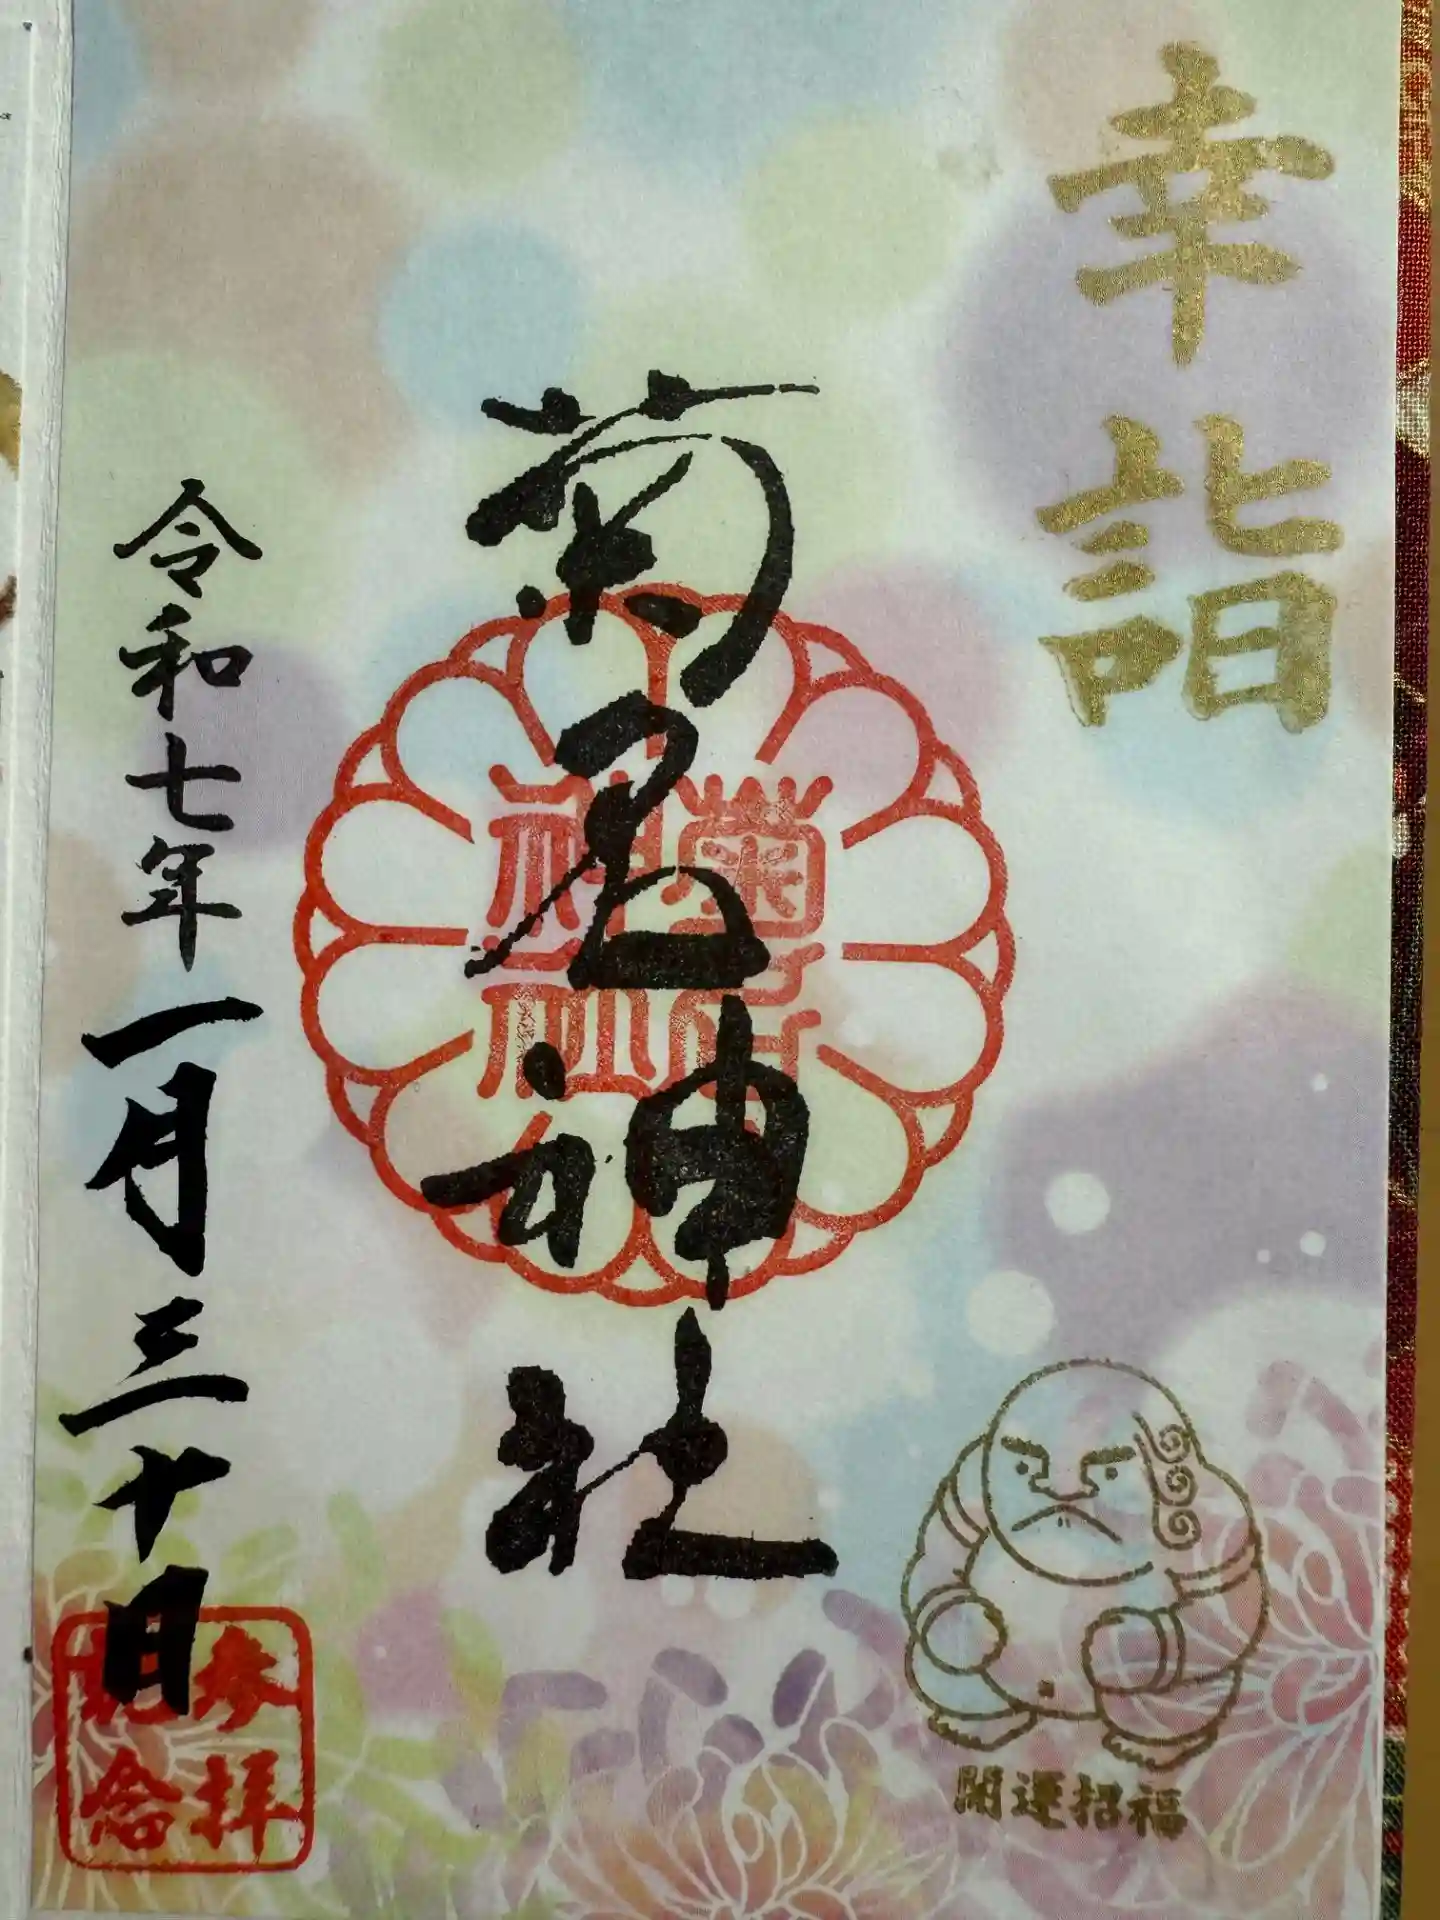 幸詣
菊名神社
菊名
神社
令和七年一月三十日
参拝
記念
開運招福